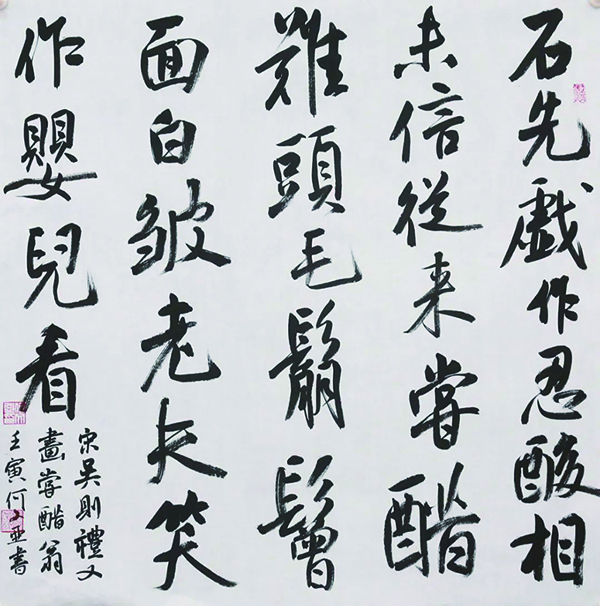 石先戯作忍酸相
未信從来嘗醋
難頭毛鬅鬙
面白皱老长笑
作嬰兒看
宋吴則禮又
畫嘗醋翁
壬寅何亚書